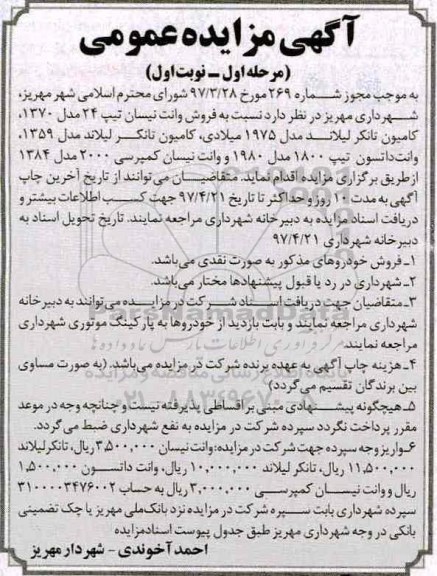 آگهی مزایده عمومی
(مرحله اول ــ نوبت اول)
به موجب مجوز شماره ۲۶۹ مورخ ۹۷/۳/۲۸ شورای محترم اسلامی شهر مهریز،
شهرداری مهریز در نظر دارد نسبت به فروش وانت نیسان تیپ ۲۴ مدل ۱۳۷۰،
کامیون تانکر لیلاند مدل ۱۹۷۵ میلادی، کامیون تانکر لیلاند مدل ۱۳۵۹،
وانت داتسون تیپ ۱۸۰۰ مدل ۱۹۸۰ و وانت نیسان کمپرسی ۲۰۰۰ مدل ۱۳۸۴
از طریق برگزاری مزایده اقدام نماید. متقاضیان می توانند از تاریخ آخرین چاپ
آگهی به مدت ۱۰ روز و حداکثر تا تاریخ ۹۷/۴/۲۱ جهت کسب اطلاعات بیشتر و
دریافت اسناد مزایده به دبیرخانه شهرداری مراجعه نمایند. تاریخ تحویل اسناد به
دبیرخانه شهرداری ۹۷/۴/۲۱
۱ـ فروش خودروهای مذکور به صورت نقدی می‌باشد.
۲ـ شهرداری در رد یا قبول پیشنهادها مختار می‌باشد.
۳ـ متقاضیان جهت دریافت اسناد شرکت در مزایده می‌توانند به دبیرخانه
شهرداری مراجعه نمایند و بابت بازدید از خودروها به پارکینگ موتوری شهرداری
مراجعه نمایند.
۴ـ هزینه چاپ آگهی به عهده برنده شرکت در مزایده می‌باشد. (به صورت مساوی
بین برندگان تقسیم می‌گردد)
۵ـ هیچگونه پیشنهادی مبنی بر اقساطی پذیرفته نیست و چنانچه وجه در موعد
مقرر پرداخت نگردد سپرده شرکت در مزایده به نفع شهرداری ضبط می‌گردد.
۶ـ واریز وجه سپرده جهت شرکت در مزایده: وانت نیسان ۳,۵۰۰,۰۰۰ ریال، تانکر لیلاند
۱۱,۵۰۰,۰۰۰ ریال، تانکر لیلاند ۱۰,۰۰۰,۰۰۰ ریال، وانت داتسون ۱,۵۰۰,۰۰۰
ریال و وانت نیسان کمپرسی ۳,۰۰۰,۰۰۰ ریال به حساب ۳۱۰۰۰۰۳۴۷۶۰۰۲
سپرده شهرداری بابت سپره شرکت در مزایده نزد بانک ملی مهریز یا چک تضمینی
بانکی در وجه شهرداری مهریز طبق جدول پیوست اسناد مزایده
احمد آخوندی - شهردار مهریز
ParsNamadData
۰۲۱-۸۸۳۴۹۶۷۰-۵